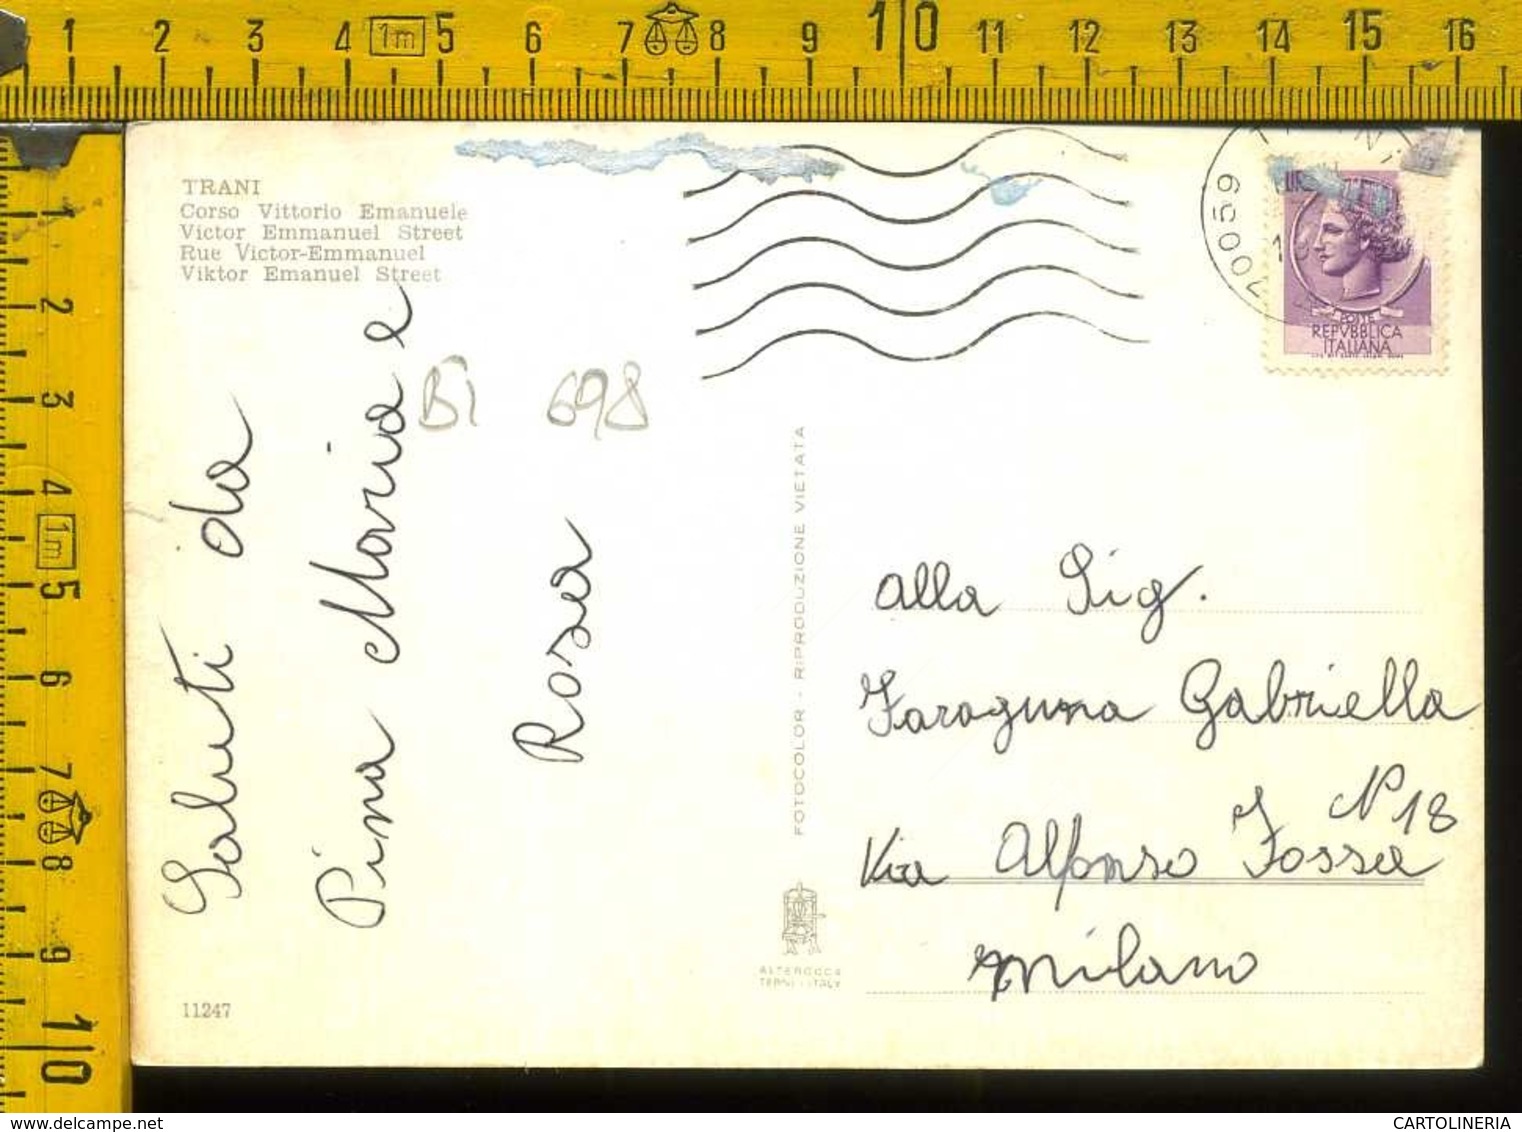 1 2 3 4 1m 5 6 7 8 9 10 11 12 13 14 15 16
1 2 3 4 1m 5 6 7 8 9 10
TRANI
Corso Vittorio Emanuele
Victor Emmanuel Street
Rue Victor-Emmanuel
Viktor Emanuel Street
Saluti da
Pina Maria e
Rosa
BA 698
11247
FOTOCOLOR - RIPRODUZIONE VIETATA
ALTEROCCA
TERNI - ITALY
70059
LIRE
POSTE
REPVBBLICA
ITALIANA
Alla Sig.
Faraguna Gabriella
N° 18
Via Alfonso Fossa
Milano
www.delcampe.net
CARTOLINERIA